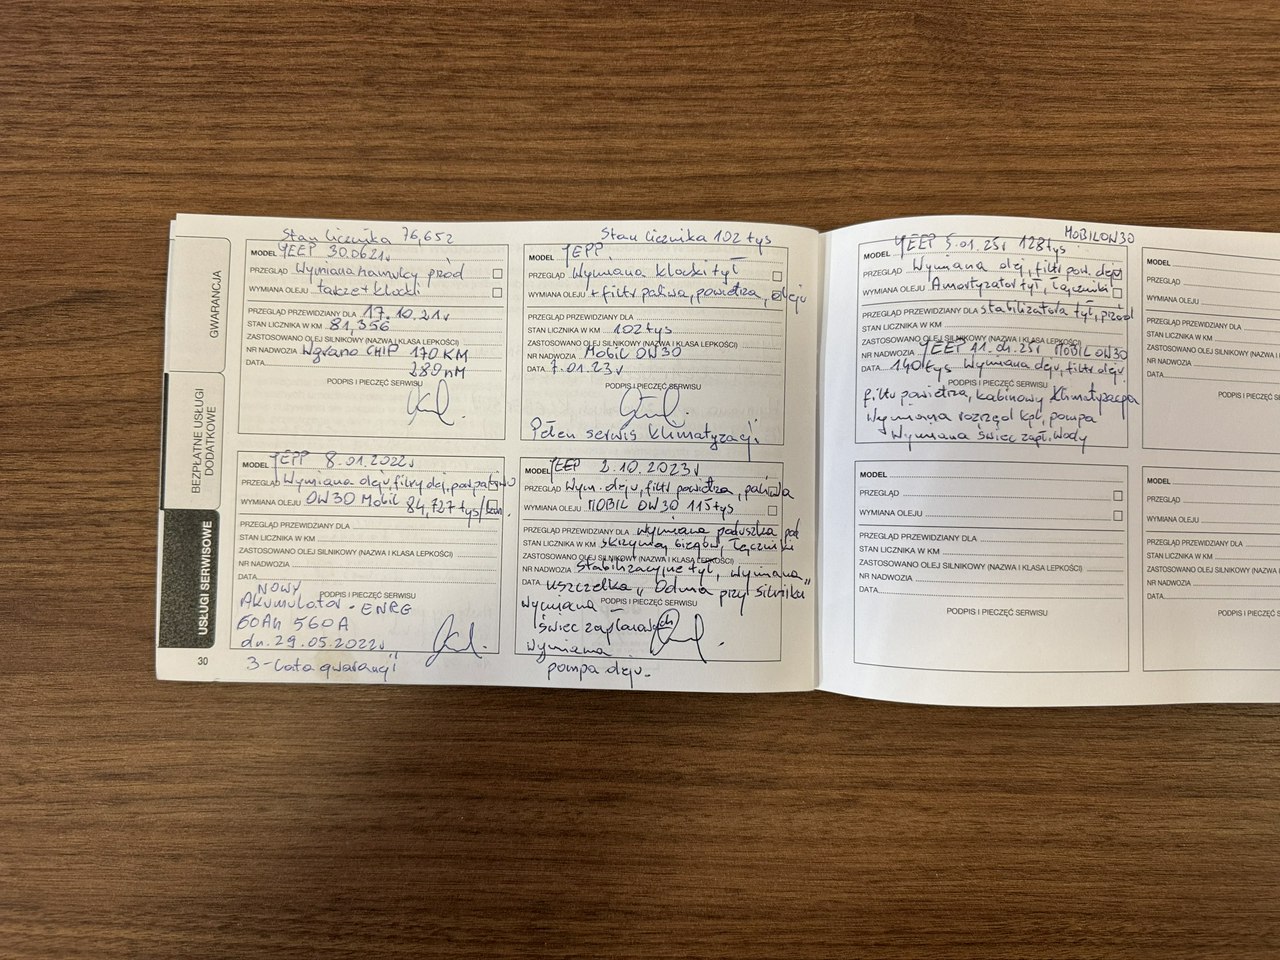 GWARANCJA
BEZPŁATNE USŁUGI
DODATKOWE
USŁUGI SERWISOWE
30
Stan licznika 76,652
MODEL YEEP 30.0621r
PRZEGLĄD Wymiana hamulcy przód
WYMIANA OLEJU także + klocki
PRZEGLĄD PRZEWIDZIANY DLA 17.10.21r
STAN LICZNIKA W KM 81,356
ZASTOSOWANO OLEJ SILNIKOWY (NAZWA I KLASA LEPKOŚCI)
NR NADWOZIA Wgrano CHIP 170 KM
DATA 280 nM
PODPIS I PIECZĘĆ SERWISU
MODEL YEPP 8.01.2022r
PRZEGLĄD Wymiana oleju, filtry olej, pow, paliwo
WYMIANA OLEJU OW30 Mobil 84,727 tys/
PRZEGLĄD PRZEWIDZIANY DLA
STAN LICZNIKA W KM
ZASTOSOWANO OLEJ SILNIKOWY (NAZWA I KLASA LEPKOŚCI)
NR NADWOZIA
DATA
NOWY PODPIS I PIECZĘĆ SERWISU
Akumulator - ENRG
60Ah 560A
dn. 29.05.2022r
3-Lata gwarancji
Stan licznika 102 tys
MODEL YEPP
PRZEGLĄD Wymiana klocki tył
WYMIANA OLEJU + filtr paliwa, powietrza, oleju
PRZEGLĄD PRZEWIDZIANY DLA
STAN LICZNIKA W KM 102 tys
ZASTOSOWANO OLEJ SILNIKOWY (NAZWA I KLASA LEPKOŚCI)
NR NADWOZIA Mobil OW30
DATA 7.01.23r
PODPIS I PIECZĘĆ SERWISU
Pełen serwis klimatyzacji
MODEL YEEP 2.10.2023r
PRZEGLĄD Wym. oleju, filtr powietrza, paliwa
WYMIANA OLEJU MOBIL OW30 115 tys
PRZEGLĄD PRZEWIDZIANY DLA wymiana poduszka pod
STAN LICZNIKA W KM skrzynią biegów, Łączniki
ZASTOSOWANO OLEJ SILNIKOWY (NAZWA I KLASA LEPKOŚCI)
NR NADWOZIA Stabilizacyjne tył, wymiana
DATA uszczelka "Odma przy silniku
Wymiana PODPIS I PIECZĘĆ SERWISU
świec żarowych
wymiana
pompa oleju.
MOBIL OW30
MODEL YEEP 5.01.25r 128 tys
PRZEGLĄD Wymiana olej, filtr pow. oleju
WYMIANA OLEJU Amortyzator tył, Łączniki
PRZEGLĄD PRZEWIDZIANY DLA stabilizatora tył, przód
STAN LICZNIKA W KM
ZASTOSOWANO OLEJ SILNIKOWY (NAZWA I KLASA LEPKOŚCI)
NR NADWOZIA YEEP 11.04.25r MOBIL OW30
DATA 140 tys Wymiana oleju, filtr oleju
PODPIS I PIECZĘĆ SERWISU
filtr powietrza, kabinowy Klimatyzacja
Wymiana rozrząd kpl, pompa
Wymiana świec zapł. wody
MODEL
PRZEGLĄD
WYMIANA OLEJU
PRZEGLĄD PRZEWIDZIANY DLA
STAN LICZNIKA W KM
ZASTOSOWANO OLEJ SILNIKOWY (NAZWA I KLASA LEPKOŚCI)
NR NADWOZIA
DATA
PODPIS I PIECZĘĆ SERWISU
MODEL
PRZEGLĄD
WYMIANA OLEJU
PRZEGLĄD PRZEWIDZIANY
STAN LICZNIKA W KM
ZASTOSOWANO OLEJ SILNIKOWY (NA
NR NADWOZIA
DATA
PODPIS I PIECZĘ
MODEL
PRZEGLĄD
WYMIANA OLEJU
PRZEGLĄD PRZEWIDZIANY DLA
STAN LICZNIKA W KM
ZASTOSOWANO OLEJ SILNIKOWY (NAZWA
NR NADWOZIA
DATA
PODPIS I PIECZĘĆ